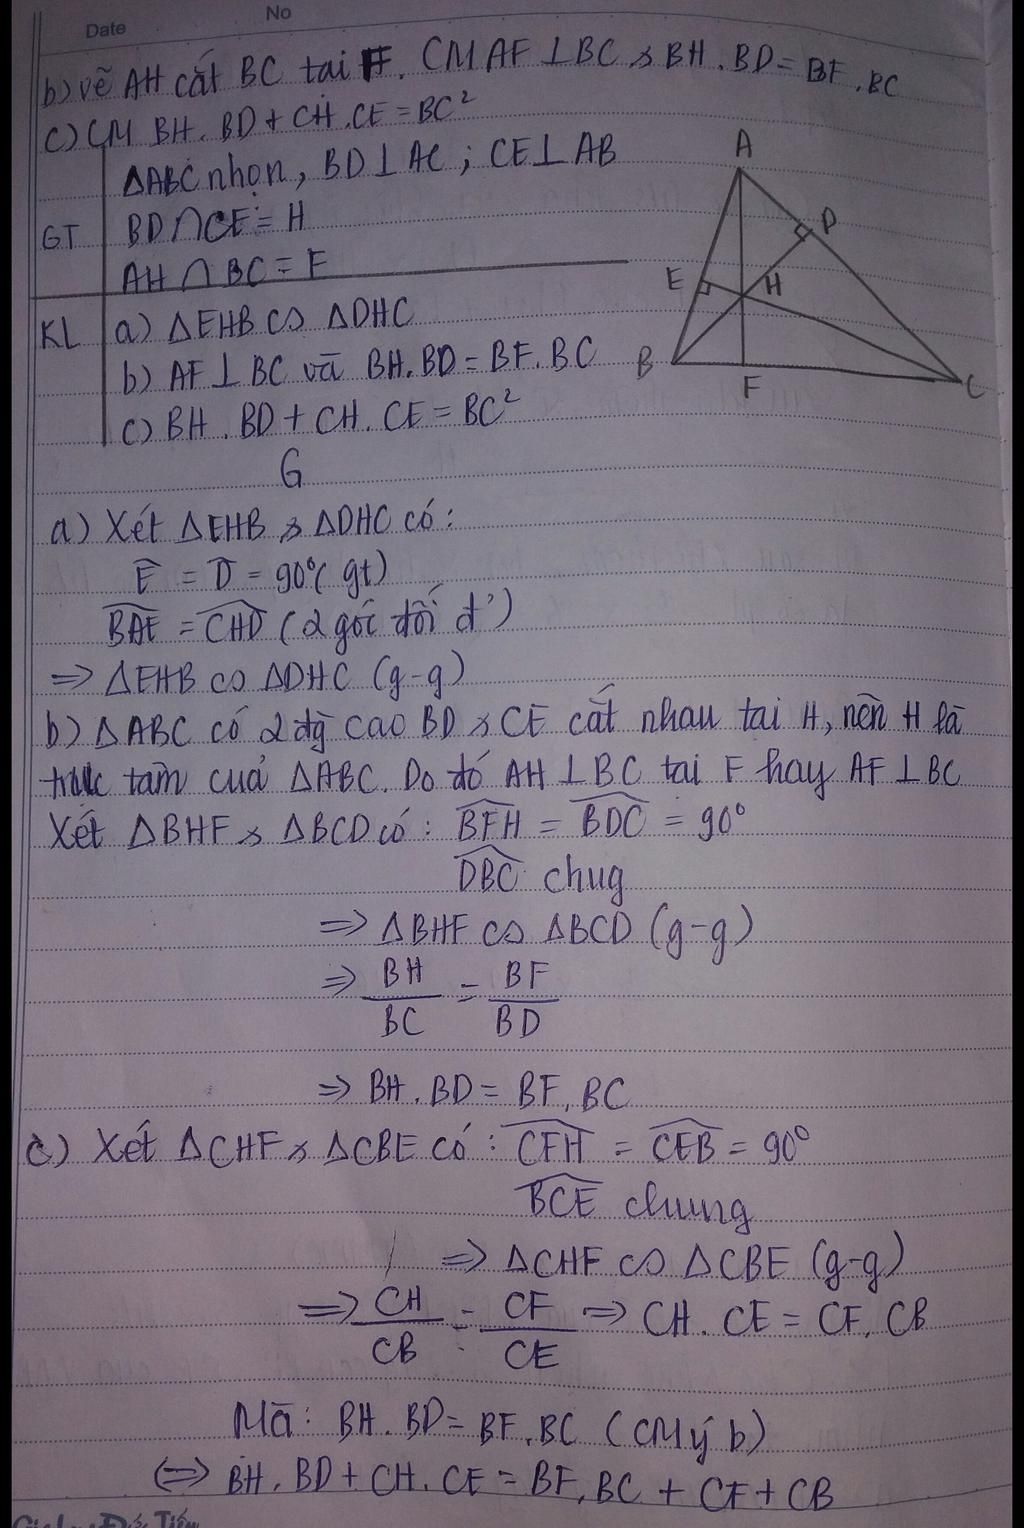 Date
No
b) vẽ AH cắt BC tai F. CM AF ⊥ BC & BH . BD = BF . BC
c) CM BH . BD + CH . CE = BC²
GT
ΔABC nhọn, BD ⊥ AC ; CE ⊥ AB
BD ∩ CE = H
AH ∩ BC = F
KL
a) ΔEHB ∽ ΔDHC
b) AF ⊥ BC và BH . BD = BF . BC
c) BH . BD + CH . CE = BC²
A
D
E
H
B
F
C
G
a) Xét ΔEHB & ΔDHC có :
Ê = D̂ = 90° ( gt)
BAE = CHD ( 2 góc đối đ')
=> ΔEHB ∽ ΔDHC (g-g)
b) ΔABC có 2 đg cao BD & CE cắt nhau tai H, nên H là
trưc tâm cuả ΔABC. Do đó AH ⊥ BC tai F hay AF ⊥ BC
Xét ΔBHF & ΔBCD có : BFH = BDC = 90°
DBC chug
=> ΔBHF ∽ ΔBCD (g-g)
=> BH/BC = BF/BD
=> BH . BD = BF . BC
c) Xét ΔCHF & ΔCBE có : CFH = CEB = 90°
BCE chung
=> ΔCHF ∽ ΔCBE (g-g)
=> CH/CB = CF/CE => CH . CE = CF . CB
Mà : BH . BD = BF . BC ( CM ý b)
(=> BH . BD + CH . CE = BF . BC + CF + CB